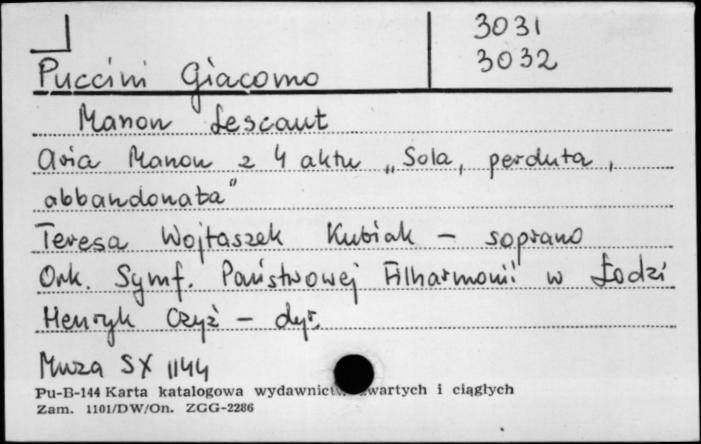 3031
3032
Puccini Giacomo
Manon Lescaut
Aria Manon z 4 aktu „Sola, perduta,
abbandonata"
Teresa Wojtaszek Kubiak – soprano
Ork. Symf. Państwowej Filharmonii w Łodzi
Henryk Czyż – dyr.
Muza SX 1144
Pu-B-144 Karta katalogowa wydawnictw zwartych i ciągłych
Zam. 1101/DW/On. ZGG-2286